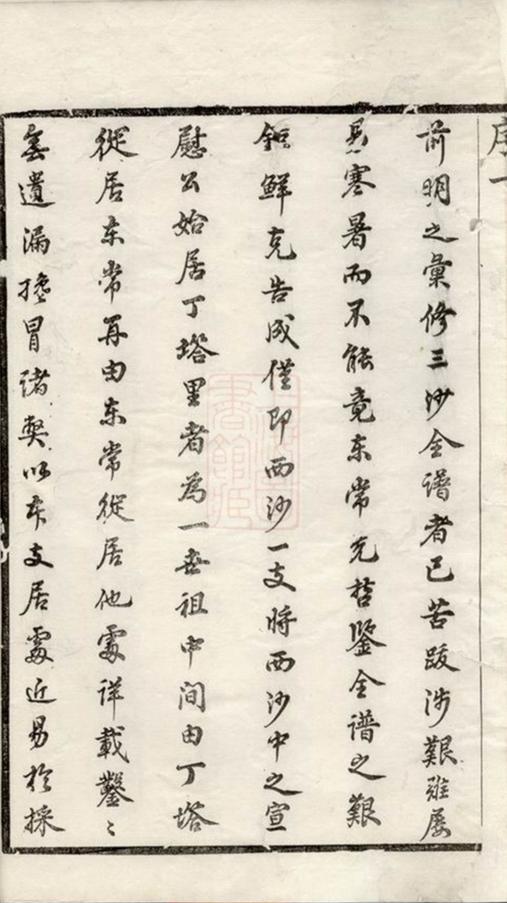 序一
前明之彙修三沙全譜者已苦跋涉艱難屢
易寒暑而不能竟东常克哲鑒全谱之艱
鉅鮮克告成僅即西沙一支將西沙中之宣
慰公始居丁塔里者為一世祖中间由丁塔
從居东常再由东常從居他處详載鑿〻
無遺漏搀冒诸獘以本支居處近易於採